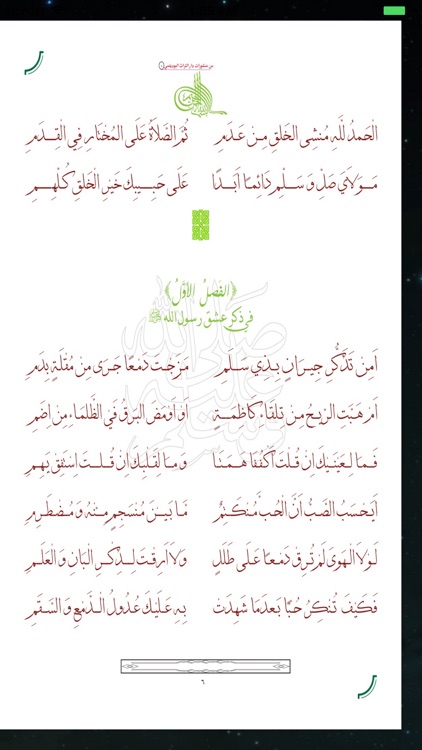 من منشورات دار التراث البوديلمي
الْحَمدُ لِلَّهِ مُنْشِي الخَلقِ مِنْ عَدَمِ ثُمَّ الصَّلَاةُ عَلَى المُخْتَارِ فِي الْقِدَمِ
مَوْلَايَ صَلِّ وَسَلِّمْ دَائِمًا أَبَدًا عَلَى حَبِيبِكَ خَيْرِ الْخَلقِ كُلِّهِمِ
﴿الفَصْلُ الأَوَّلُ﴾
في ذكر عشق رسول الله ﷺ
صلى الله عليه وسلم
اَمِنْ تَذَكُّرِ جِيرَانٍ بِذِي سَلَمِ مَزَجْتَ دَمْعًا جَرَى مِنْ مُقْلَةٍ بِدَمِ
اَمْ هَبَّتِ الرِّيحُ مِنْ تِلْقَاءِ كَاظِمَةٍ اَوْ اَوْمَضَ الْبَرْقُ فِي الظَّلْمَاءِ مِنْ اِضَمِ
فَمَا لِعَيْنَيْكَ اِنْ قُلْتَ اكْفُفَا هَمَتَا وَمَا لِقَلْبِكَ اِنْ قُلْتَ اسْتَفِقْ يَهِمِ
اَيَحْسَبُ الصَّبُّ اَنَّ الْحُبَّ مُنْكَتِمٌ مَا بَيْنَ مُنْسَجِمٍ مِنْهُ وَ مُضْطَرِمِ
لَوْلَا الْهَوَى لَمْ تُرِقْ دَمْعًا عَلَى طَلَلٍ وَلَا اَرِقْتَ لِذِكْرِ الْبَانِ وَ الْعَلَمِ
فَكَيْفَ تُنْكِرُ حُبًّا بَعْدَمَا شَهِدَتْ بِهِ عَلَيْكَ عُدُولُ الدَّمْعِ وَ السَّقَمِ
٦